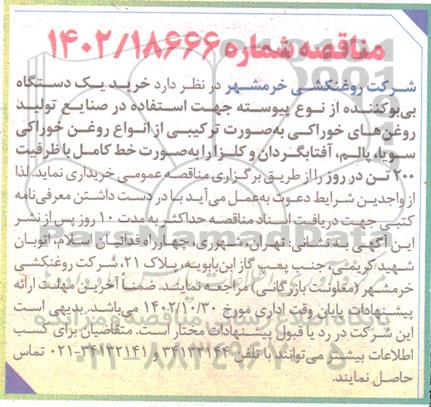 مناقصه شماره ۱۴۰۲/۱۸۶۶۶
شرکت روغنکشی خرمشهر در نظر دارد خرید یک دستگاه
بی‌بوکننده از نوع پیوسته جهت استفاده در صنایع تولید
روغن‌های خوراکی به‌صورت ترکیبی از انواع روغن خوراکی
سویا، پالم، آفتابگردان و کلزا را به‌صورت خط کامل با ظرفیت
۲۰۰ تن در روز را از طریق برگزاری مناقصه عمومی خریداری نماید. لذا
از واجدین شرایط دعوت به‌عمل می‌آید با در دست داشتن معرفی‌نامه
کتبی جهت دریافت اسناد مناقصه حداکثر به مدت ۱۰ روز پس از نشر
این آگهی به نشانی: تهران، شهرری، چهارراه فدائیان اسلام، اتوبان
شهید کریمی، جنب پمپ گاز ابن‌بابویه، پلاک ۲۱، شرکت روغنکشی
خرمشهر (معاونت بازرگانی) مراجعه نمایند. ضمناً آخرین مهلت ارائه
پیشنهادات پایان وقت اداری مورخ ۱۴۰۲/۱۰/۳۰ می‌باشد. بدیهی است
این شرکت در رد یا قبول پیشنهادات مختار است. متقاضیان برای کسب
اطلاعات بیشتر می‌توانند با تلفن ۳۴۱۳۲۱۴۴ و ۳۴۱۳۲۱۴۱-۰۲۱ تماس
حاصل نمایند.
ParsNamadData